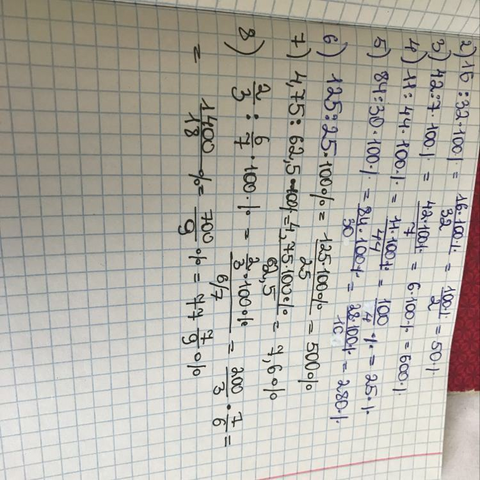 2) 16 : 32 · 100% = 16·100%/32 = 100%/2 = 50%
3) 42 : 7 · 100% = 42·100%/7 = 6·100% = 600%
4) 11 : 44 · 100% = 11·100%/44 = 100/4 % = 25%
5) 84 : 30 · 100% = 84·100%/30 = 28·100%/10 = 280%
6) 125 : 25 · 100% = 125·100%/25 = 500%
7) 4,75 : 62,5 · 100% = 4,75·100%/62,5 = 7,6%
8) 2/3 : 6/7 · 100% = 2/3 · 100% / 6/7 = 200/3 · 7/6 =
= 1400/18 % = 700/9 % = 77 7/9 %